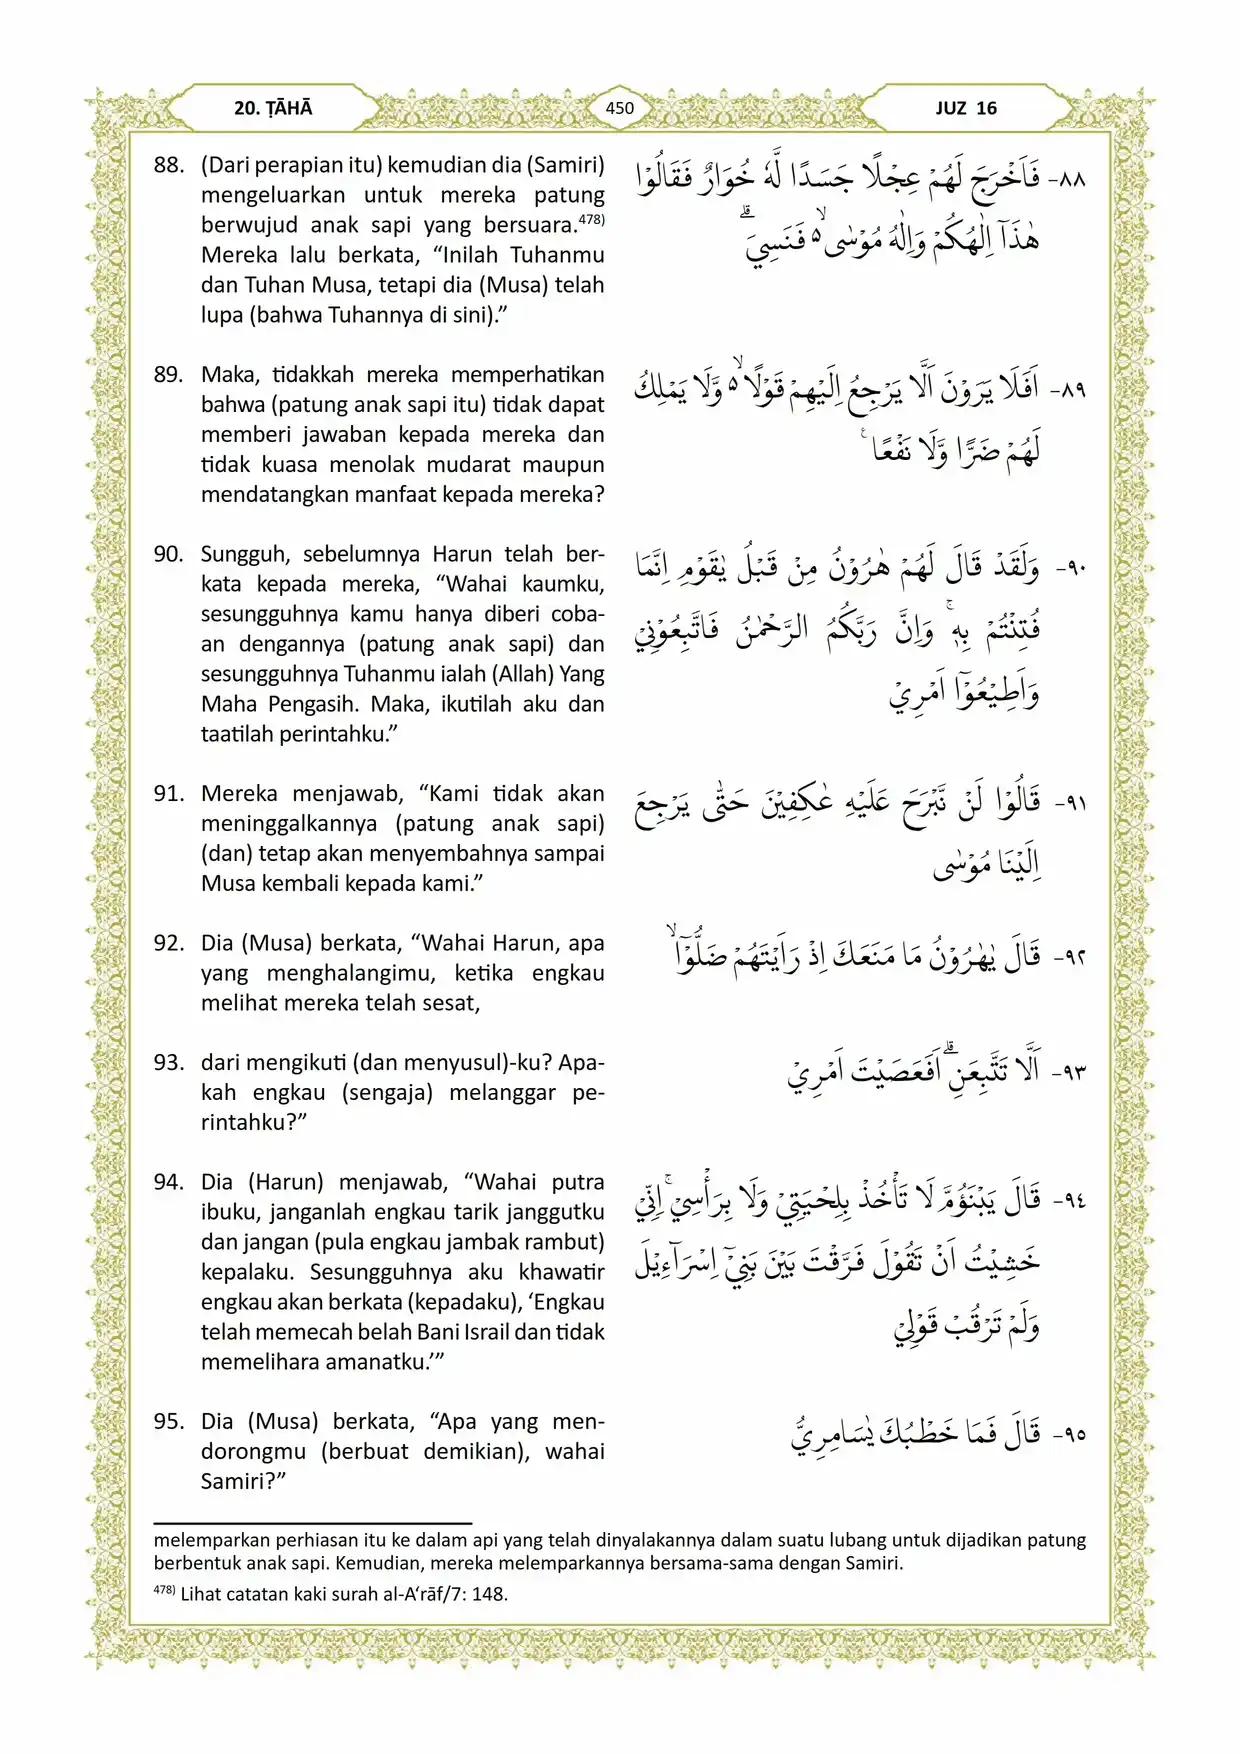 20. ṬĀHĀ
450
JUZ 16
88. (Dari perapian itu) kemudian dia (Samiri)
mengeluarkan untuk mereka patung
berwujud anak sapi yang bersuara.478)
Mereka lalu berkata, “Inilah Tuhanmu
dan Tuhan Musa, tetapi dia (Musa) telah
lupa (bahwa Tuhannya di sini).”
٨٨- فَاَخْرَجَ لَهُمْ عِجْلًا جَسَدًا لَّهٗ خُوَارٌ فَقَالُوْا
هٰذَآ اِلٰهُكُمْ وَاِلٰهُ مُوْسٰى ەۙ فَنَسِيَ ۗ
89. Maka, tidakkah mereka memperhatikan
bahwa (patung anak sapi itu) tidak dapat
memberi jawaban kepada mereka dan
tidak kuasa menolak mudarat maupun
mendatangkan manfaat kepada mereka?
٨٩- اَفَلَا يَرَوْنَ اَلَّا يَرْجِعُ اِلَيْهِمْ قَوْلًا ەۙ وَّلَا يَمْلِكُ
لَهُمْ ضَرًّا وَّلَا نَفْعًا ࣖ
90. Sungguh, sebelumnya Harun telah ber-
kata kepada mereka, “Wahai kaumku,
sesungguhnya kamu hanya diberi coba-
an dengannya (patung anak sapi) dan
sesungguhnya Tuhanmu ialah (Allah) Yang
Maha Pengasih. Maka, ikutilah aku dan
taatilah perintahku.”
٩٠- وَلَقَدْ قَالَ لَهُمْ هٰرُوْنُ مِنْ قَبْلُ يٰقَوْمِ اِنَّمَا
فُتِنْتُمْ بِهٖۚ وَاِنَّ رَبَّكُمُ الرَّحْمٰنُ فَاتَّبِعُوْنِيْ
وَاَطِيْعُوْٓا اَمْرِيْ
91. Mereka menjawab, “Kami tidak akan
meninggalkannya (patung anak sapi)
(dan) tetap akan menyembahnya sampai
Musa kembali kepada kami.”
٩١- قَالُوْا لَنْ نَّبْرَحَ عَلَيْهِ عٰكِفِيْنَ حَتّٰى يَرْجِعَ
اِلَيْنَا مُوْسٰى
92. Dia (Musa) berkata, “Wahai Harun, apa
yang menghalangimu, ketika engkau
melihat mereka telah sesat,
٩٢- قَالَ يٰهٰرُوْنُ مَا مَنَعَكَ اِذْ رَاَيْتَهُمْ ضَلُّوْٓاۙ
93. dari mengikuti (dan menyusul)-ku? Apa-
kah engkau (sengaja) melanggar pe-
rintahku?”
٩٣- اَلَّا تَتَّبِعَنِۗ اَفَعَصَيْتَ اَمْرِيْ
94. Dia (Harun) menjawab, “Wahai putra
ibuku, janganlah engkau tarik janggutku
dan jangan (pula engkau jambak rambut)
kepalaku. Sesungguhnya aku khawatir
engkau akan berkata (kepadaku), ‘Engkau
telah memecah belah Bani Israil dan tidak
memelihara amanatku.’”
٩٤- قَالَ يَبْنَؤُمَّ لَا تَأْخُذْ بِلِحْيَتِيْ وَلَا بِرَأْسِيْۚ اِنِّيْ
خَشِيْتُ اَنْ تَقُوْلَ فَرَّقْتَ بَيْنَ بَنِيْٓ اِسْرَاۤءِيْلَ
وَلَمْ تَرْقُبْ قَوْلِيْ
95. Dia (Musa) berkata, “Apa yang men-
dorongmu (berbuat demikian), wahai
Samiri?”
٩٥- قَالَ فَمَا خَطْبُكَ يٰسَامِرِيُّ
melemparkan perhiasan itu ke dalam api yang telah dinyalakannya dalam suatu lubang untuk dijadikan patung
berbentuk anak sapi. Kemudian, mereka melemparkannya bersama-sama dengan Samiri.
478) Lihat catatan kaki surah al-A‘rāf/7: 148.